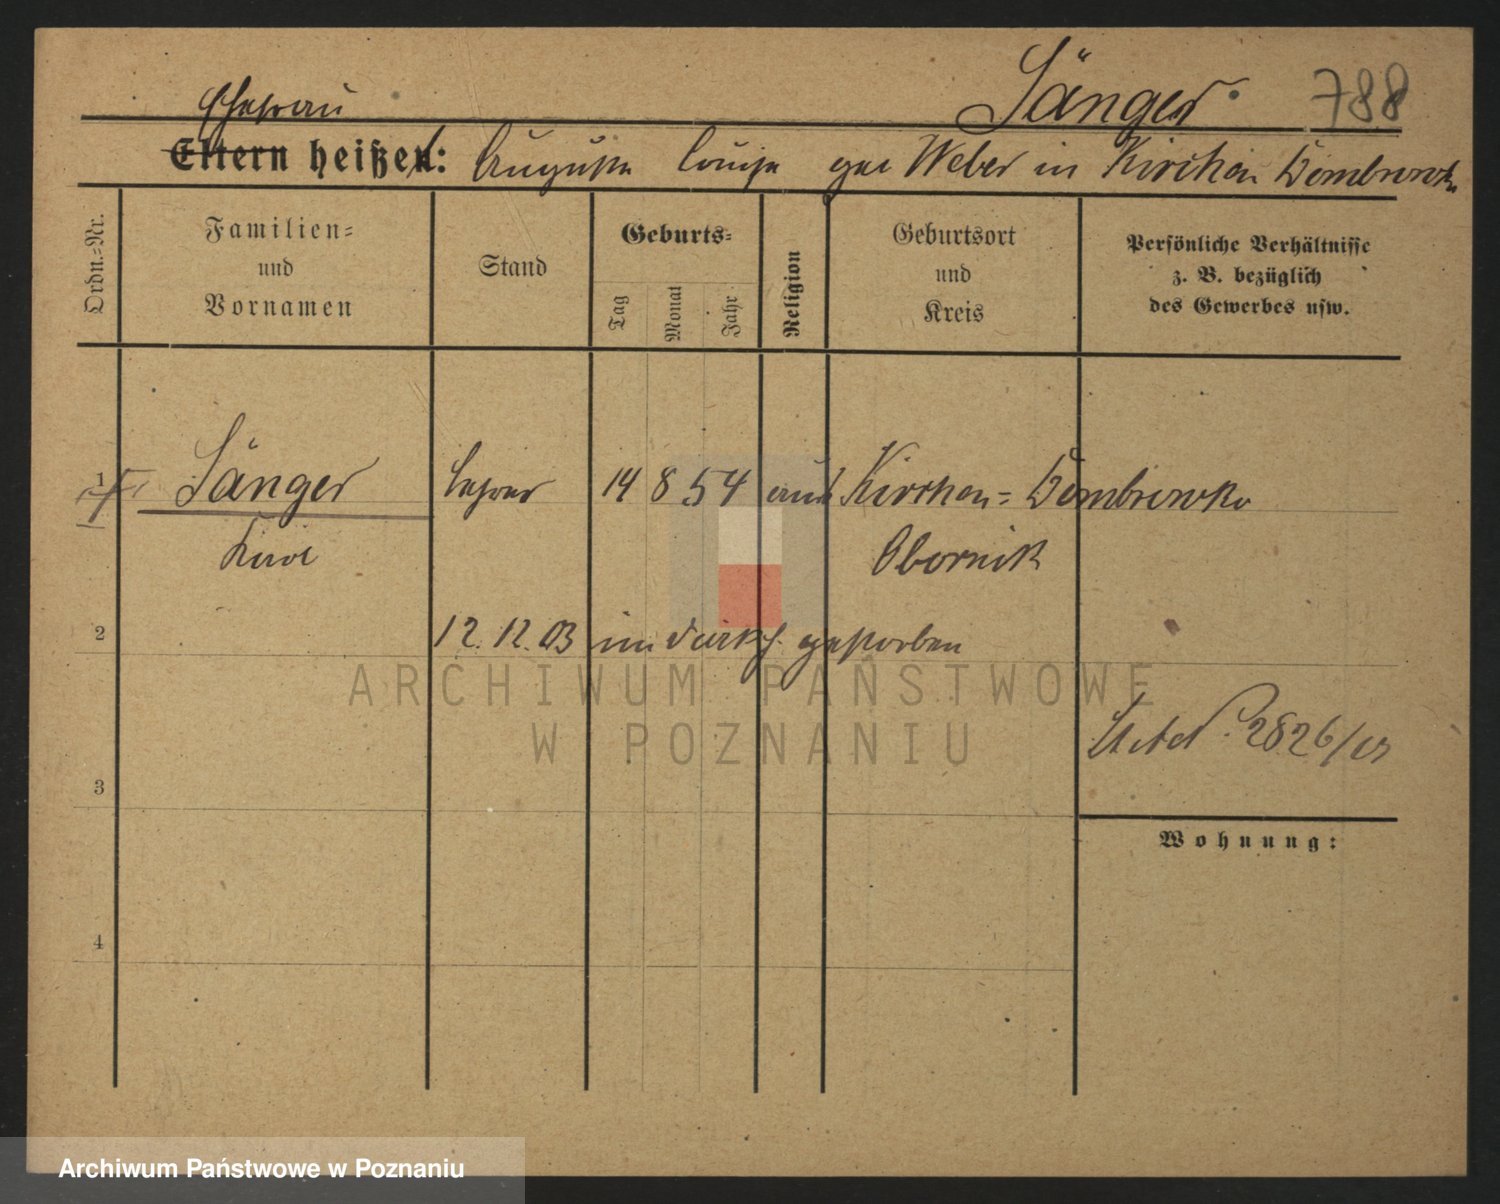 Sänger 788
Ehefrau
Eltern heißen: Auguste Louise geb Weber in Kirchen Dombrowka
Ordn.-Nr.
Familien-
und
Vornamen
Stand
Geburts-
Tag
Monat
Jahr
Religion
Geburtsort
und
Kreis
Persönliche Verhältnisse
z. B. bezüglich
des Gewerbes usw.
1 Sänger Lehrer 14 8 54 Kirchen- Dombrowko
Karl Obornik
2 12. 12. 03 im gestorben
ARCHIWUM PAŃSTWOWE
W POZNANIU
2826/03
3
Wohnung:
4
Archiwum Państwowe w Poznaniu